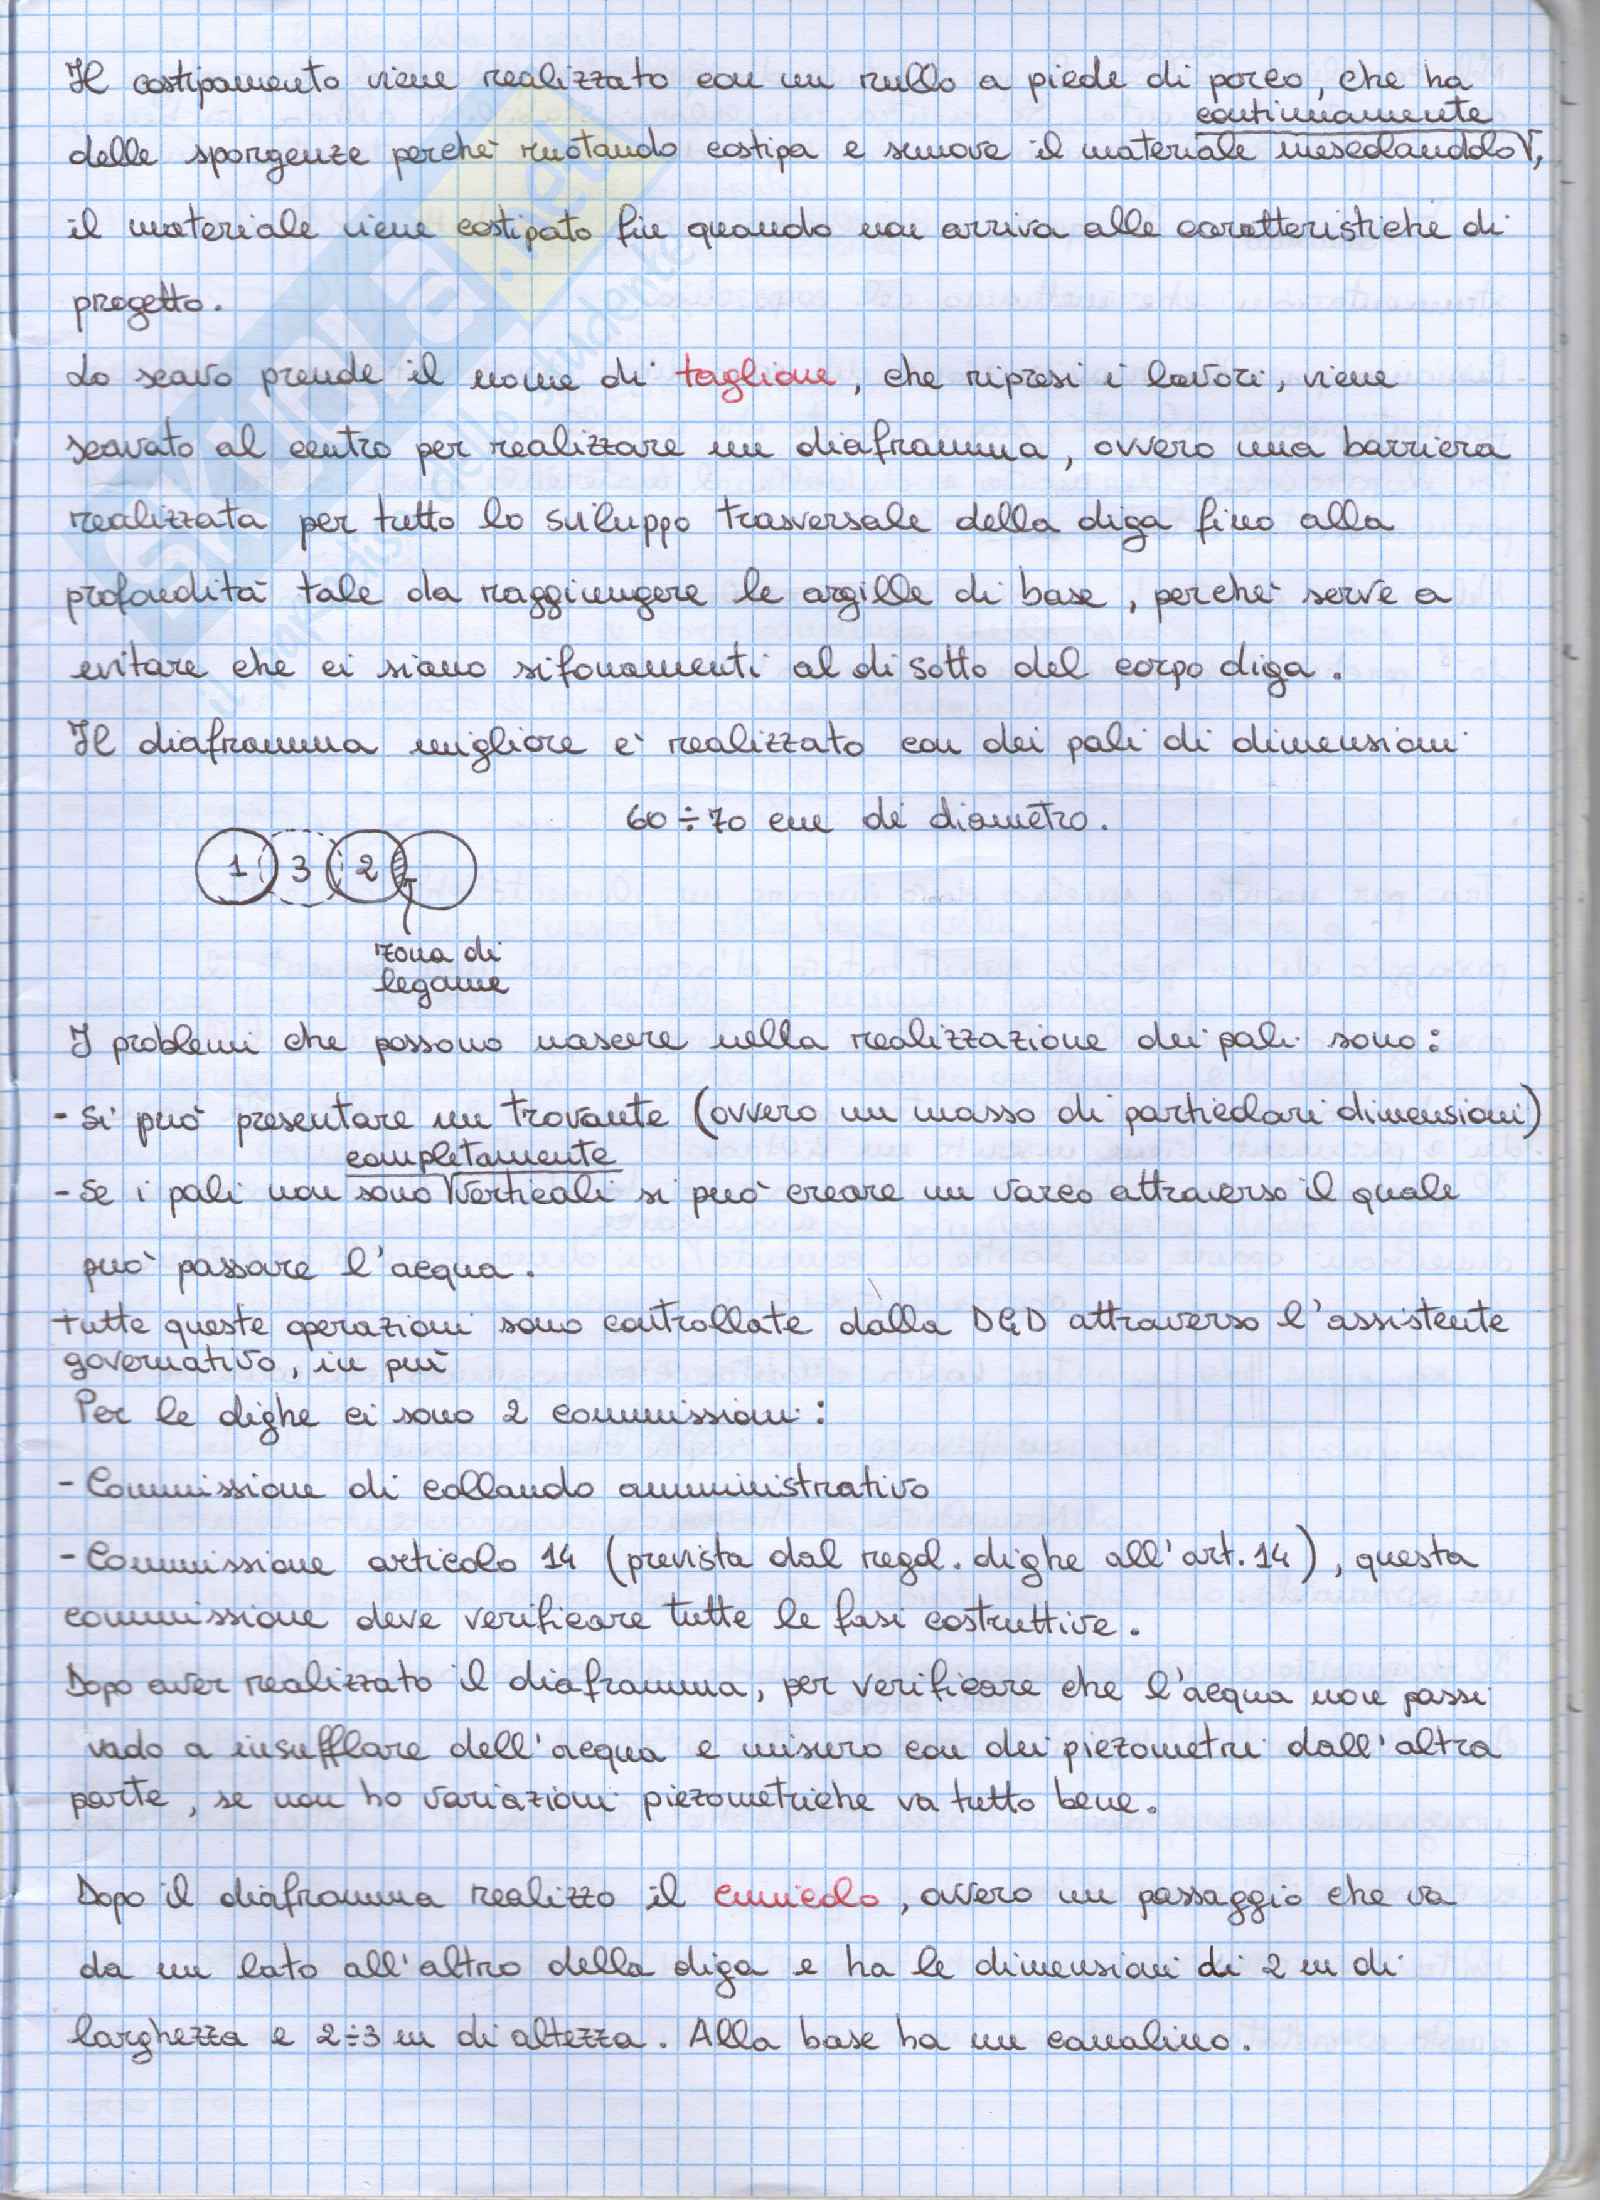 Il costipamento viene realizzato con un rullo a piede di porco, che ha
continuamente
delle sporgenze perchè ruotando costipa e smuove il materiale mescolandolo,
il materiale viene costipato fin quando non arriva alle caratteristiche di
progetto.
Lo scavo prende il nome di taglione, che ripresi i lavori, viene
scavato al centro per realizzare un diaframma, ovvero una barriera
realizzata per tutto lo sviluppo trasversale della diga fino alla
profondità tale da raggiungere le argille di base, perchè serve a
evitare che ci siano sifonamenti al di sotto del corpo diga.
Il diaframma migliore è realizzato con dei pali di dimensioni
60÷70 cm di diametro.
1 3 2
zona di
legame
I problemi che possono nascere nella realizzazione dei pali sono:
- Si può presentare un trovante (ovvero un masso di particolari dimensioni)
completamente
- Se i pali non sono verticali si può creare un varco attraverso il quale
può passare l'acqua.
tutte queste operazioni sono controllate dalla DGD attraverso l'assistente
governativo, in più
Per le dighe ci sono 2 commissioni:
- Commissione di collaudo amministrativo
- Commissione articolo 14 (prevista dal regol. dighe all'art. 14), questa
commissione deve verificare tutte le fasi costruttive.
Dopo aver realizzato il diaframma, per verificare che l'acqua non passi
vado a insufflare dell'acqua e misuro con dei piezometri dall'altra
parte, se non ho variazioni piezometriche va tutto bene.
Dopo il diaframma realizzo il cunicolo, ovvero un passaggio che va
da un lato all'altro della diga e ha le dimensioni di 2 m di
larghezza e 2÷3 m di altezza. Alla base ha un canalino.
SKUOLA.net
il paradiso dello studente